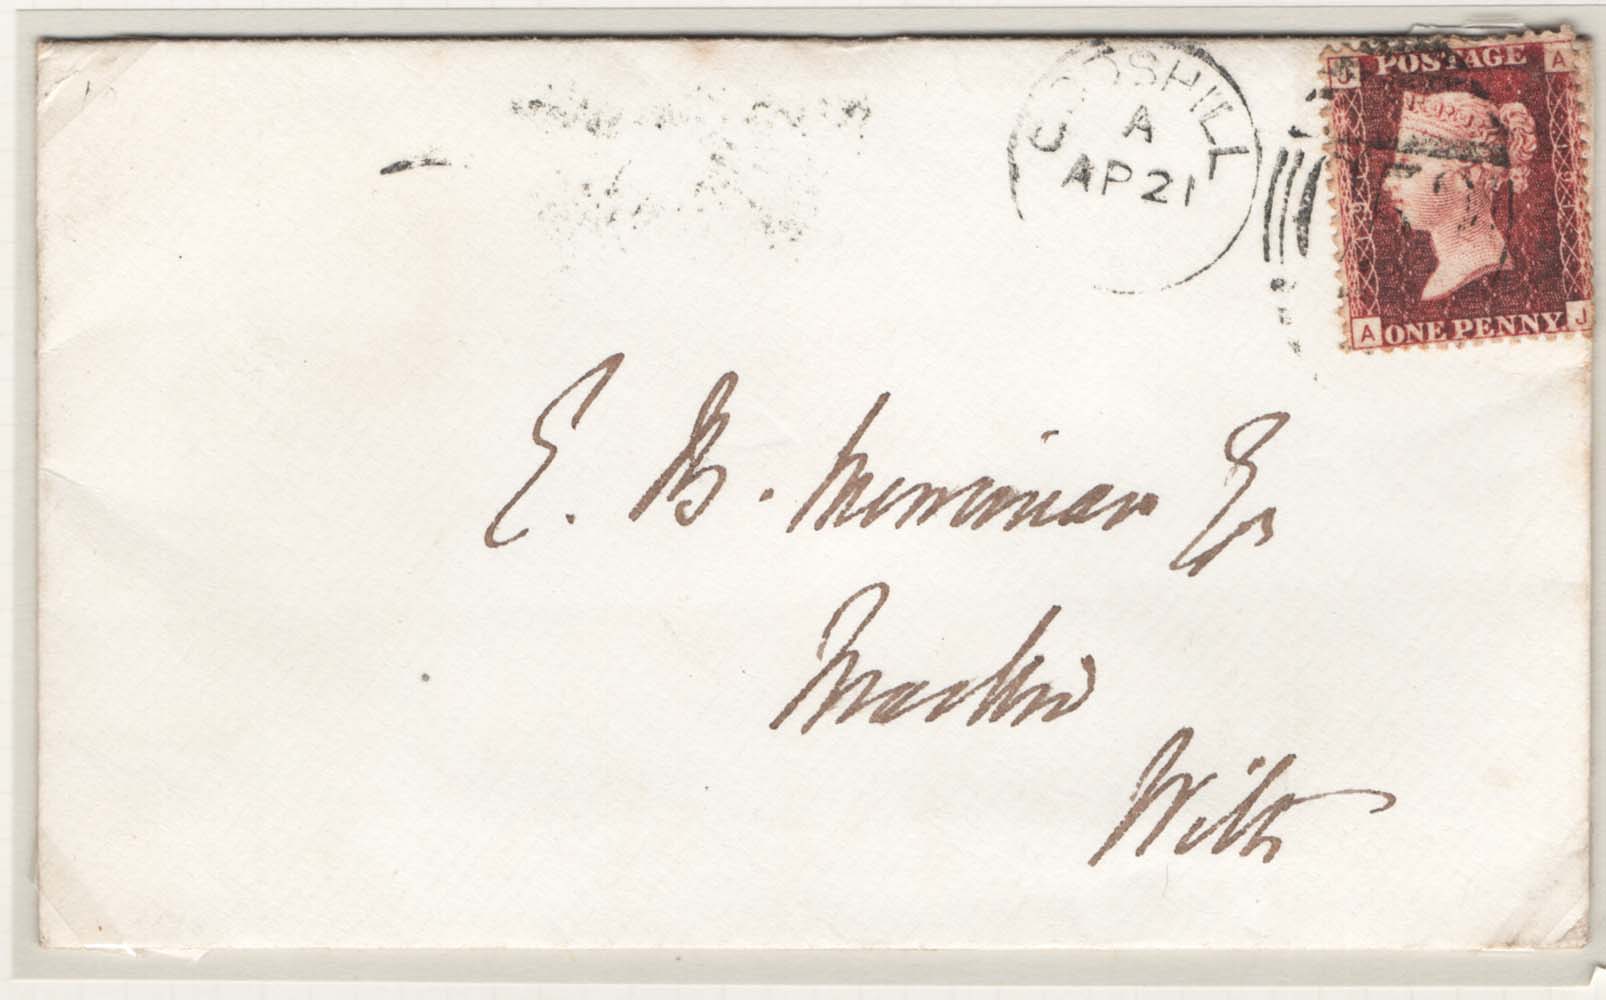 GODSHILL
A
AP 21
J POSTAGE A
A ONE PENNY J
E. B. Merriman Esq
Marlbro
Wilts